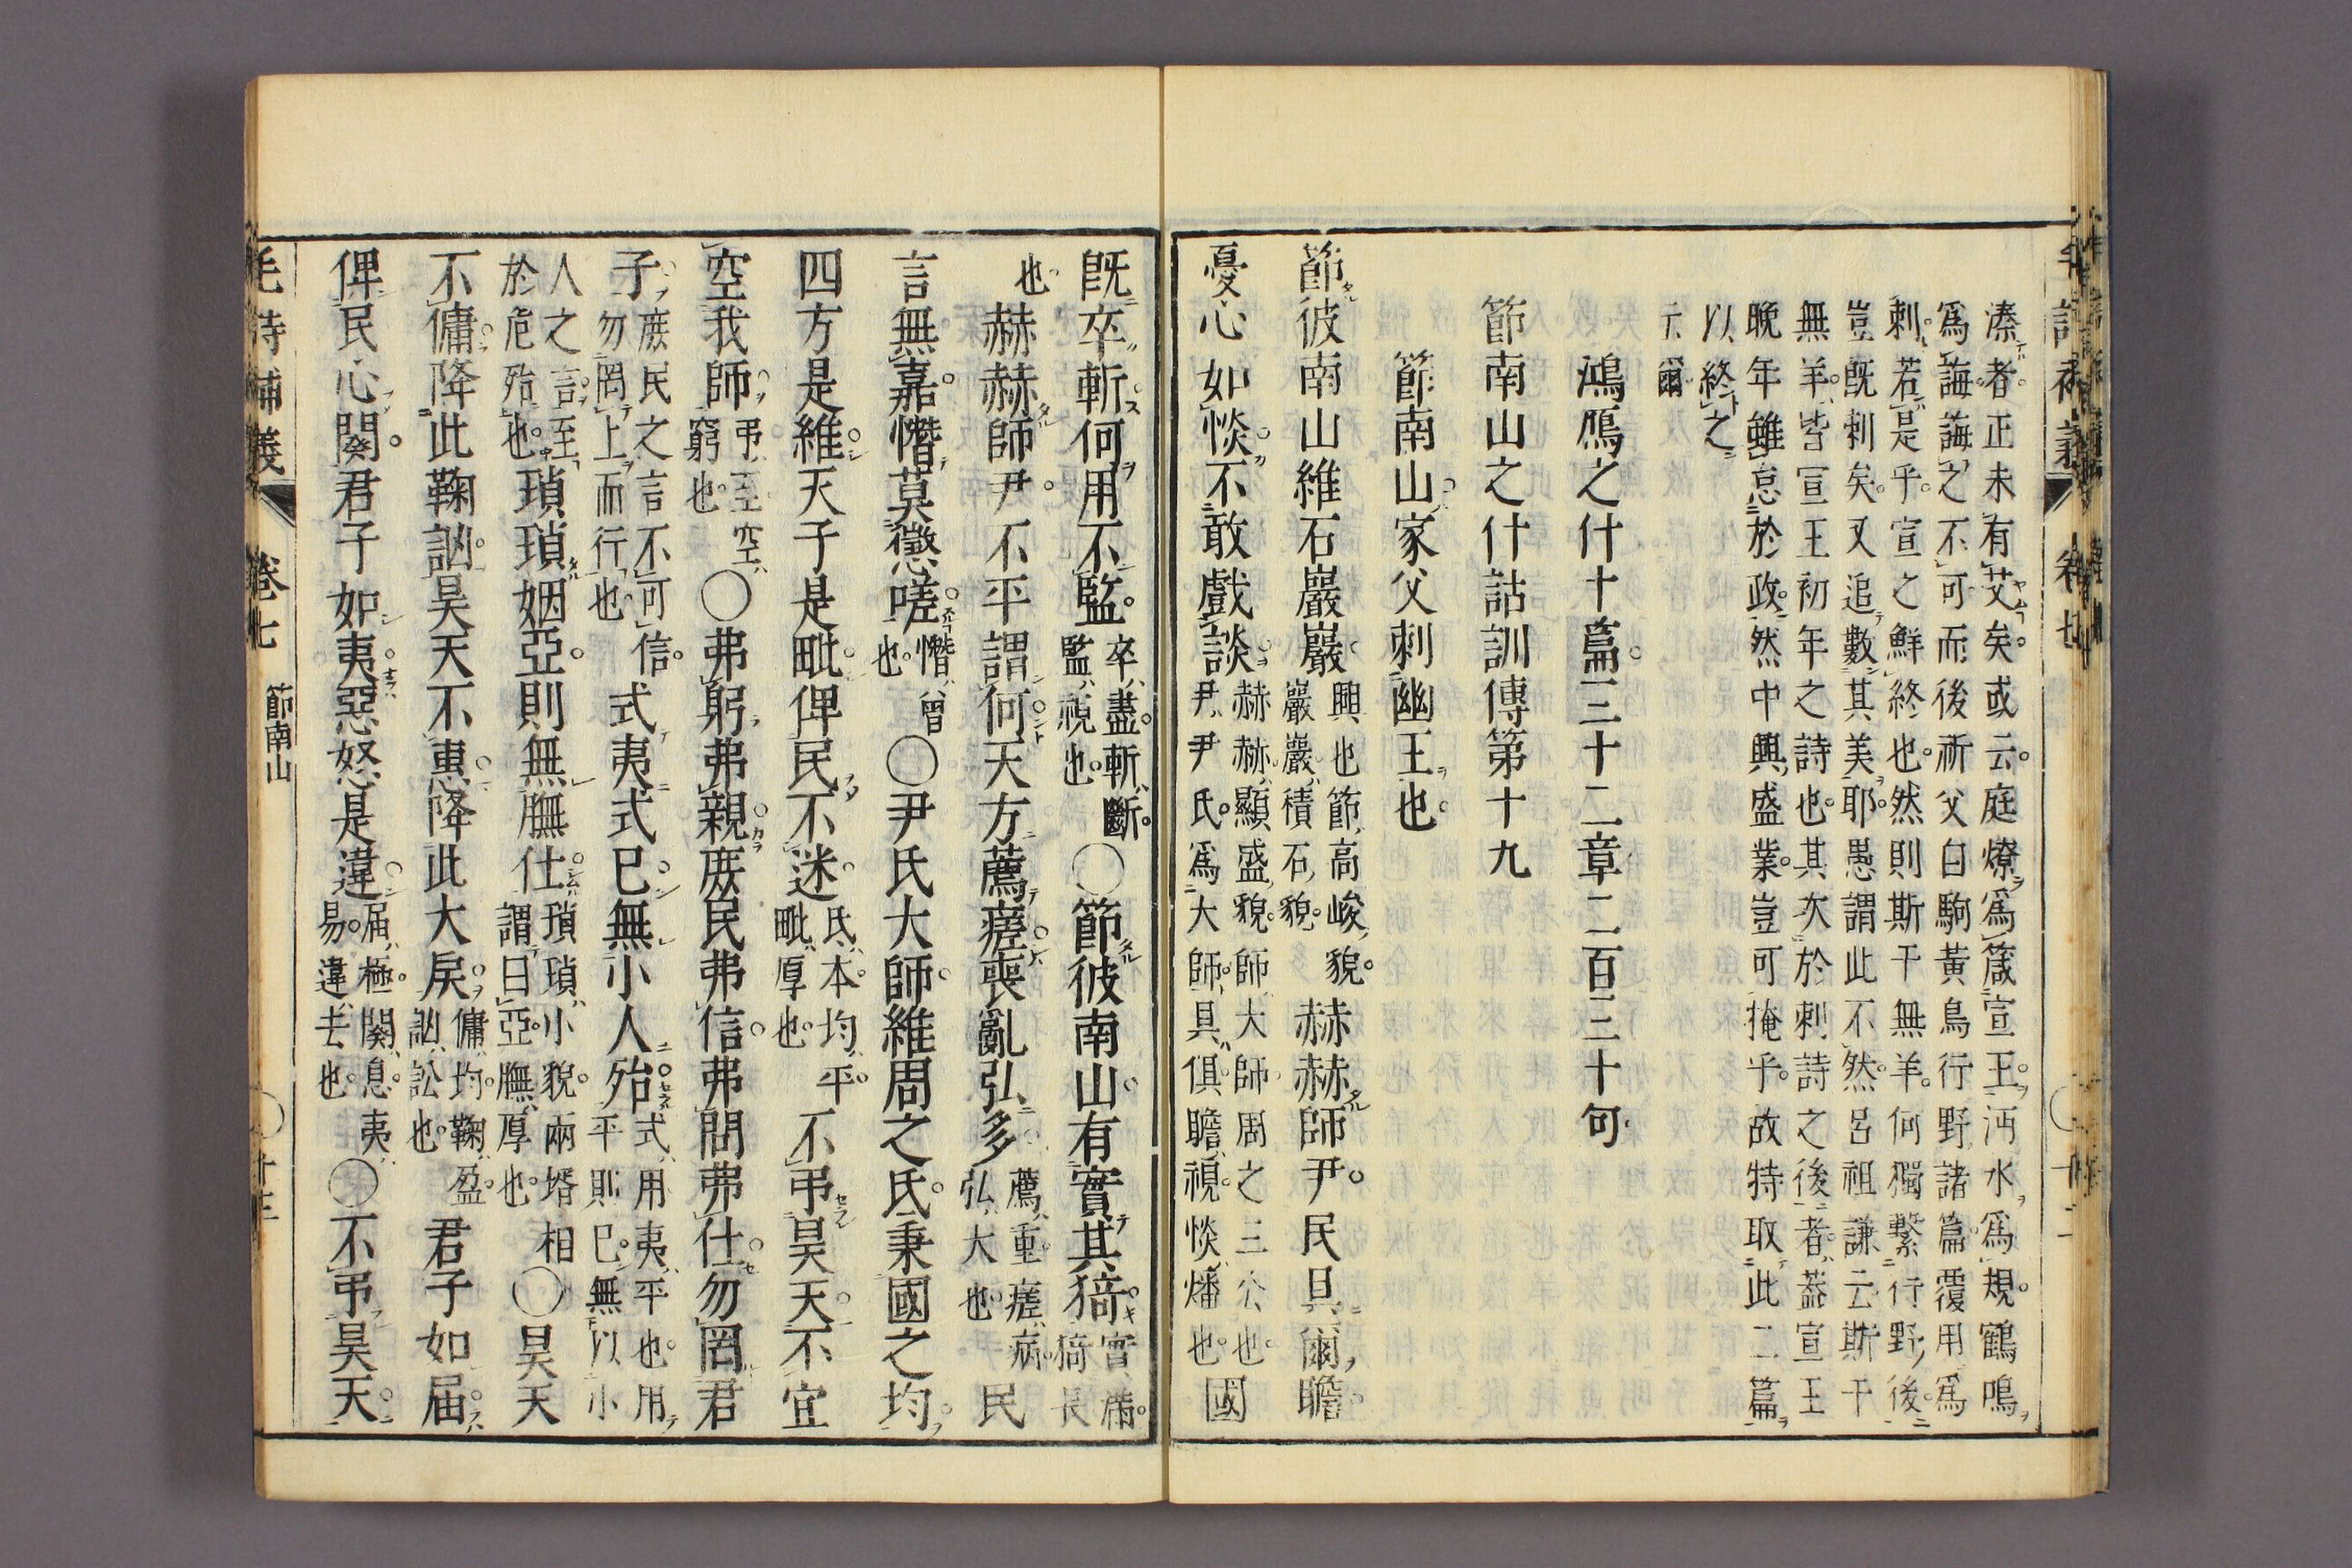 湊者正未有艾矣或云庭燎爲箴宣王沔水爲規鶴鳴
爲誨誨之不可而後祈父白駒黃鳥行野諸篇覆用爲
刺若是乎宣之鮮終也然則斯干無羊何獨繫行野後
豈既刺矣又追數其美耶愚謂此不然呂祖謙云斯干
無羊皆宣王初年之詩也其次於刺詩之後者葢宣王
晚年雖怠於政然中興盛業豈可掩乎故特取此二篇
以終之
云爾
鴻鴈之什十篇三十二章二百三十句
節南山之什詁訓傳第十九
節南山家父刺幽王也
節彼南山維石巖巖興也節高峻貌巖巖積石貌赫赫師尹民具爾瞻
憂心如惔不敢戲談赫赫顯盛貌師大師周之三公也尹尹氏爲大師具俱瞻視惔燔也國
既卒斬何用不監卒盡斬斷監視也○節彼南山有實其猗實滿猗長
也赫赫師尹不平謂何天方薦瘥喪亂弘多薦重瘥病弘大也民
言無嘉憯莫懲嗟憯曾也○尹氏大師維周之氐秉國之均
四方是維天子是毗俾民不迷氐本均平毗厚也不弔昊天不宜
空我師弔至空窮也○弗躬弗親庶民弗信弗問弗仕勿罔君
子庶民之言不可信勿罔上而行也式夷式已無小人殆式用夷平也用平則已無以小
人之言至於危殆也瑣瑣姻亞則無膴仕瑣瑣小貌兩壻相謂曰亞膴厚也○昊天
不傭降此鞠訩昊天不惠降此大戾傭均鞠盈訩訟也君子如届
俾民心闋君子如夷惡怒是違届極闋息夷易違去也○不弔昊天
毛詩補義 卷七 節南山